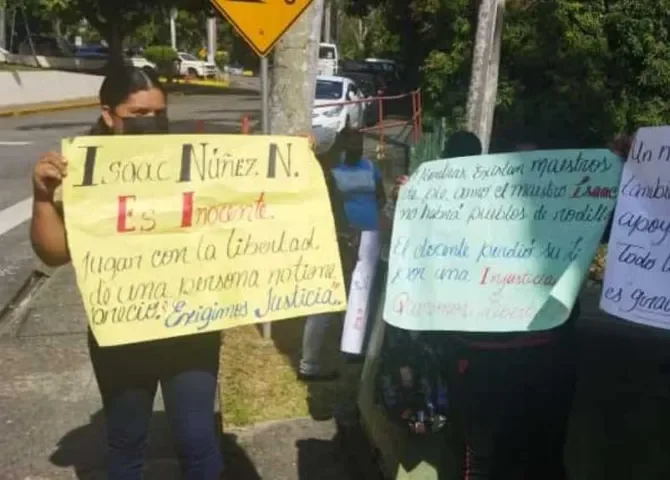 Isaac Núñez. N.
Es Inocente.
Jugar con la libertad
de una persona no tiene
precio. "Exigimos Justicia"
Mientras Existan maestros
de pie, como el maestro Isaac
no habrá pueblos de rodillas
El docente perdió su
por una Injusticia
Un mo
Cambi
apoyo
Todo
es gana